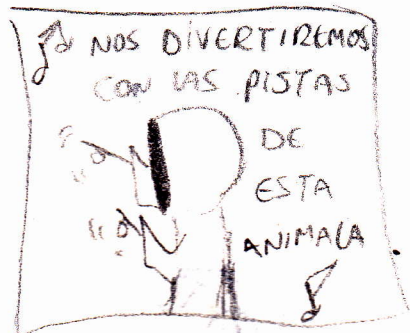 NOS DIVERTIREMOS
CON LAS PISTAS
DE
ESTA
ANIMALA